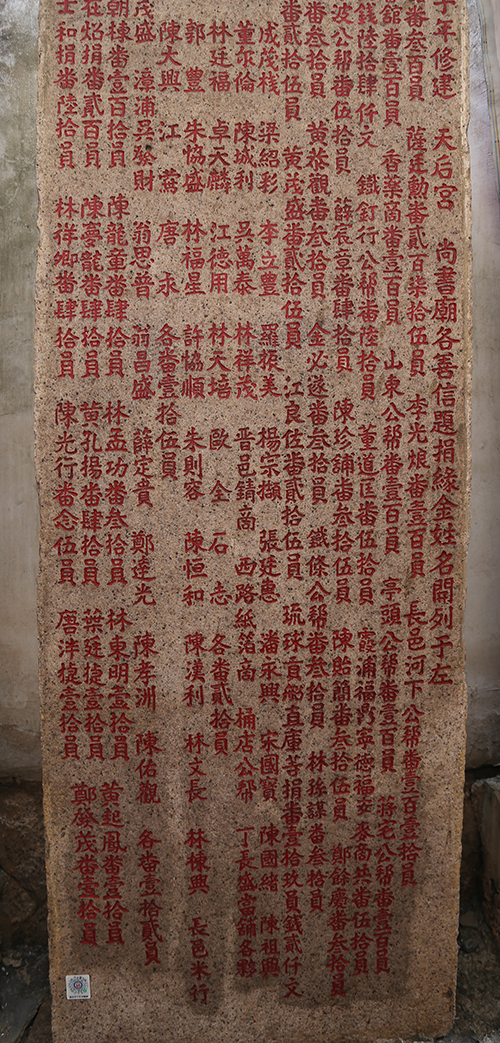 子年修建　天后宮　尚書廟各善信題捐緣金姓名開列于左
番叁百員　薩廷勲番貳百柒拾伍員　李光烺番壹百員　長邑河下公幇番壹百壹拾員
舘番壹百員　香藥啇番壹百員　山東公幇番壹百員　亭頭公幇番壹百員　蔣宅公幇番壹百員
錢陸拾肆仟文　鐵釘行公幇番陸拾員　董道匡番伍拾員　霞浦福鼎寧德福安
波公幇番伍拾員　薛宸亮番肆拾員　陳珍舗番叁拾伍員　陳貽蘭番叁拾伍員　鄭餘慶番叁拾員
番叁拾員　黄裕觀番叁拾員　金必遂番叁拾員　鐵條公幇番叁拾員　林孫謀番叁拾員
番貳拾伍員　黄茂盛番貳拾伍員　江良佐番貳拾伍員　琉球貢船直庫等捐番壹拾玖員錢貳仟文
成茂棧　梁紹彩　李立豊　羅振美　楊宗擷　張廷惠　潘永興　宋國寳　陳國緒　陳祖興
董尔倫　陳城利　吴萬泰　林祥茂　晋邑錆啇　西路紙箔啇　桶店公幇　丁長盛當舗各夥
林廷福　卓天麟　江德用　林天培　歐全　石志　各番貳拾員
郭豊　朱協盛　林福星　許協順　朱則容　陳恒和　陳漢利　林文長　林棟興　長邑米行
陳大興　江　唐永　各番壹拾伍員
茂盛　漳浦吴發財　翁思普　翁昌盛　薛定貴　鄭達光　陳孝洲　陳佑觀　各番壹拾貳員
朝棟番壹百拾員　陳龍董番肆拾員　林孟功番叁拾員　林東明壹拾員　黄起鳳番壹拾員
在焰捐番貳百員　陳夢龍番肆拾員　黄孔揚番肆拾員　葉廷捷壹拾員　鄭啟茂番壹拾員
士和捐番陸拾員　林祥卿番肆拾員　陳光行番念伍員　唐泮捷壹拾員